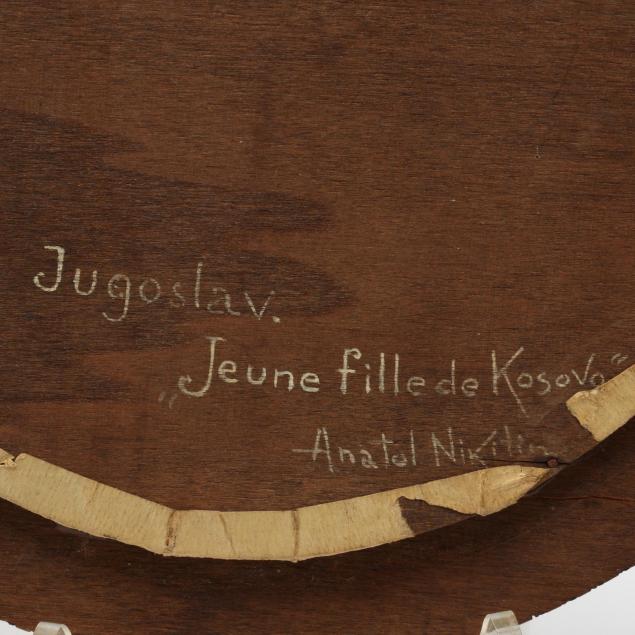 Jugoslav.
„Jeune fille de Kosovo“
Anatol Nikitin